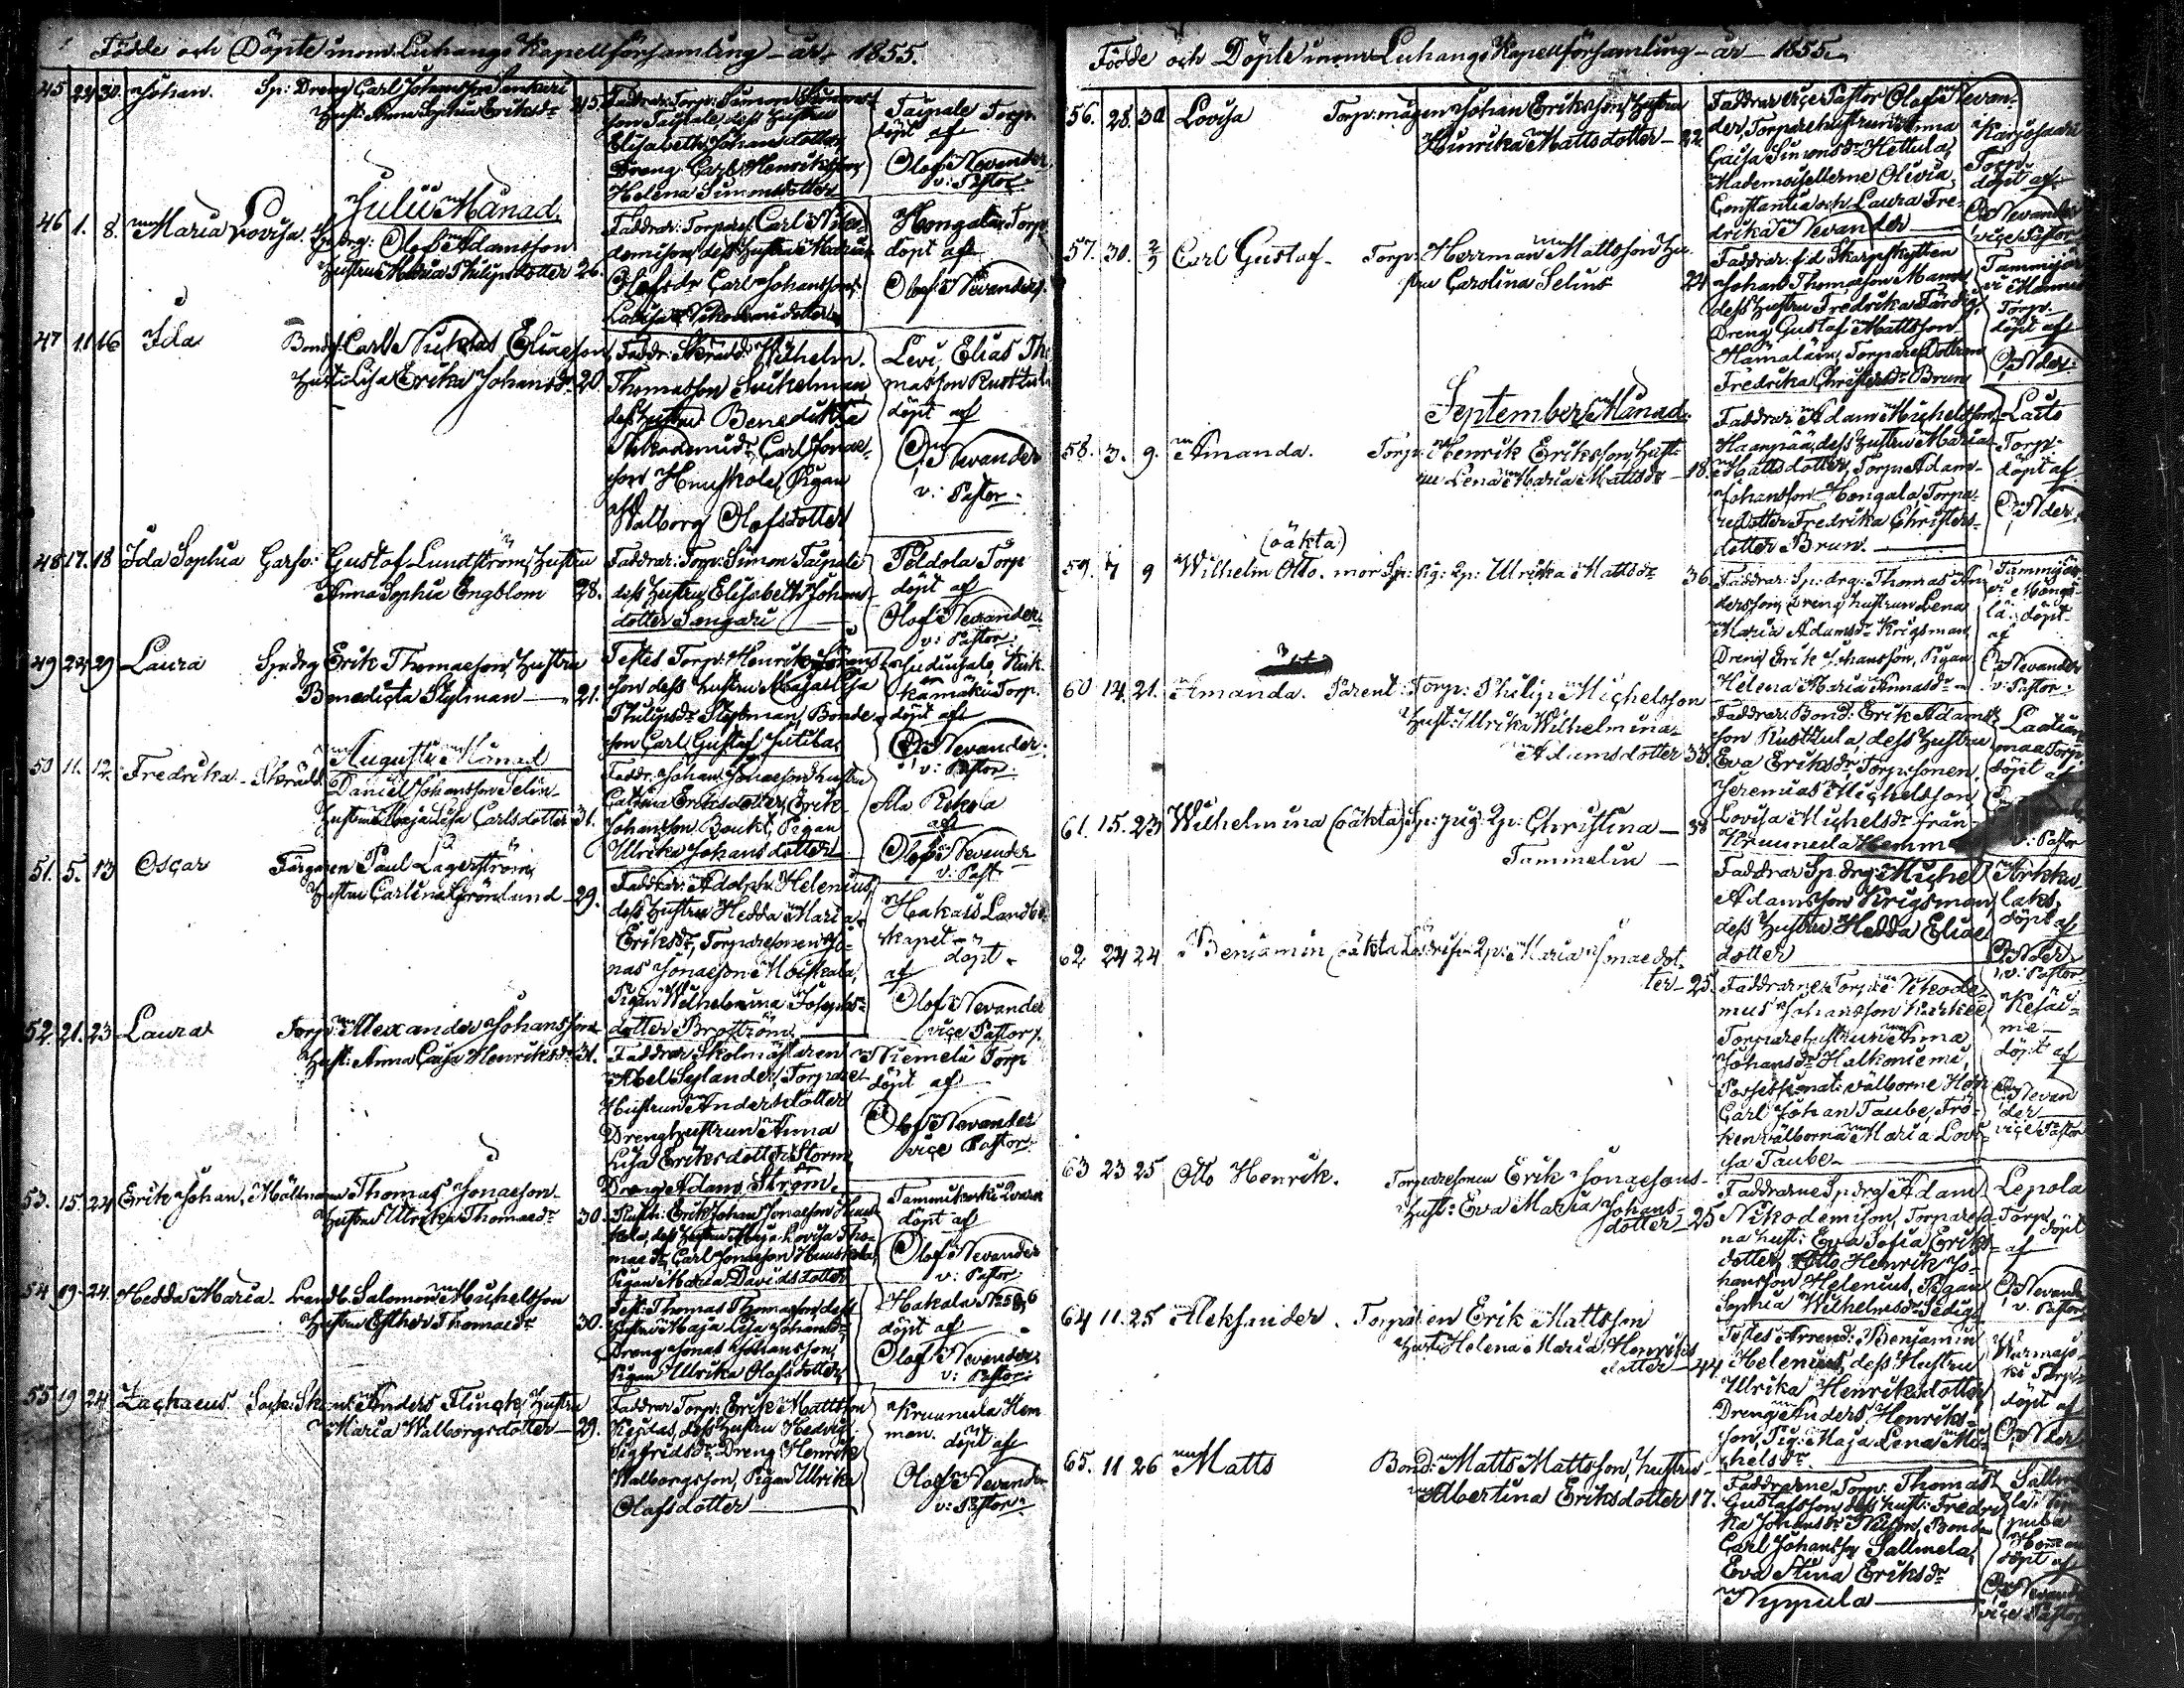 Födde och Döpte inom Luhangs Kapellförsamling år 1855.
45 24 30. Johan. Sp: Dreng Carl Johansson
Hust: Anna Sophia Eriksdr 25.
Faddrar: Torp: Simon
son Taipale, dess hustru
Elisabeth Johansdotter,
Dreng Carl Henriksson,
Helena Simonsdotter
Taipale Torp.
döpt af
Olof Nevander
v: Pastor
Julii Månad.
46 1. 8. Maria Lovisa.
Olof Adamsson
Hustru Maria Philipsdotter 26.
Faddrar: Torpar: Carl Niko-
demisson, dess hustru Maria
Olofsdr, Carl Johansson,
Lovisa Nikodemidotter
Hongala Torp
döpt af
Olof Nevander
47 11 16 Ida Bond: Carl Niklas Eliaeson
Hust: Lisa Erika Johansdr 20.
Faddr: Wilhelm
Thomasson
dess hustru Benedikta
Nikodemidr, Carl Jonae-
son Huuskola, Pigan
Walborg Olofsdotter
Levi, Elias Tho
masson Ruttula
döpt af
O. Nevander
v: Pastor
48 17. 18 Ida Sophia Garfv: Gustaf Lundström, Hustru
Anna Sophia Engblom 28.
Faddrar: Torp: Simon Taipale
dess hustru Elisabeth Johans
dotter Tangari
Peldola Torp
döpt af
Olof Nevander
v: Pastor
49 24 29 Laura Sp: drg Erik Thomaeson, Hustru
Benedicta Stylman 21.
Testes Torp: Henrik
son dess hustru Maja Lisa
Philipsdr Stylman, Bonde-
son Carl Gustaf Jutila
Torp.
döpt af
O. Nevander
v: Pastor
Augusti Månad
50 11. 12. Fredrika Skrädd:
Daniel Johansson Selin
Hustru Maja Lisa Carlsdotter 31.
Faddr: Johan Jonaeson hustru
Catrina Eriksdotter, Erik
Johansson Boukt, Pigan
Ulrika Johansdotter
Ala Rekola
af
Olof Nevander
v: Past.
51. 5. 13 Oscar Färgaren Paul Lagerström,
Hustru Carolina Grönlund 29.
Faddrar: Adolph Helenius,
dess hustru Hedda Maria
Eriksdr, Torparesonen Jo-
nas Jonaeson Moiskala,
Pigan Wilhelmina Josephs-
dotter Broström
Hakais Landb
kapel
döpt
af
Olof Nevander
viçe Pastor
52 21. 23 Laura Torp: Alexander Johansson
Hust: Anna Caisa Henriksdr 31.
Faddrar Skolmästaren
Abel Selander, Torpare
Hustrun Andersdotter
Drenghustrun Anna
Lisa Eriksdotter Storm,
Dreng Adam Ström.
Niemelä Torp
döpt af
Olof Nevander
viçe Pastor
53. 15. 24 Erik Johan. Thomas Jonaeson
Hustru Ulrika Thomaedr 30.
Erik Johan Jonaeson Huus
kola, dess hustru Maja Lovisa Tho-
maedr, Carl Jonaeson Huuskola,
Pigan Maria Davidsdotter
döpt af
Olof Nevander
v: Pastor
54 19. 24. Hedda Maria. Landb. Salomon Michelsson
Hustru Esther Thomaedr 30.
Test: Thomas Thomasson, dess
hustru Maja Lisa Johansdr
Dreng Jonas Johansson,
Pigan Ulrika Olofsdotter
Hakala
döpt af
Olof Nevander
v: Pastor
55 19 24 Zachaeus Sock: Anders Flinck, Hustru
Maria Walborgsdotter 29.
Faddrar Torp: Erik Mattsson
dess hustru Hedvig
Sigfridsdr, Dreng Henrik
Walborgsson, Pigan Ulrika
Olofsdotter
Kruunula Hem
man.
döpt af
Olof Nevander
v: Pastor
Födde och Döpte inom Luhangs Kapellförsamling år 1855.
56. 28. 30 Lovisa Torp: mågen Johan Eriksson, Hustru
Hinrika Mattsdotter 22
Faddrar viçe Pastor Olof Nevan-
der, Torparehustrun Anna
Caisa Simonsdr Hettula,
Mademoisellerne Olivia
Constantia och Laura Fre-
drika Nevander
Torp.
döpt af
O. Nevander
viçe Pastor
57. 30. 2/9 Carl Gustaf. Torp: Herrman Mattsson Hu-
stru Carolina Selius 24
Faddrar: f.d. Skarpskytten
Johan Thomaeson
dess hustru Fredrika Färdig,
Dreng Gustaf Mattsson
Hämäläin, Torpare Dottren
Fredrika Christersdr Brun
Torp.
döpt af
O. N:der
September Månad.
58. 3. 9. Amanda. Torp: Henrik Eriksson, Hust-
ru Lena Maria Mattsdr 18.
Faddrar Adam Michelsson
Haanpää, dess hustru Maria
Mattsdotter, Torp: Adam
Johansson Hongala, Torpa-
redotter Fredrika Christers-
dotter Brun.
Laito
Torp.
döpt af
O. N:der
59. 7 9 (oäkta)
Wilhelm Otto. mor Sp: pig: Qp: Ulrika Mattsdr 36.
Faddrar: Sp: drg: Thomas An
dersson, Drenghustrun Lena
Maria Adamsdr Krigsman,
Dreng Erik Johansson, Pigan
Helena Maria
döpt
af
O. Nevander
v: Pastor
60 14. 21. Amanda. Parent: Torp: Philip Michelsson
Hust: Ulrika Wilhelmina
Adamsdotter 33.
Faddrar: Bond: Erik Adams
son Ruttula, dess hustru
Eva Eriksdr, Torp: sonen
Jeremias Michelsson
Lovisa Michelsdr från
Kruunula Hemma
Torp.
döpt af
v: Pastor
61. 15. 23 Wilhelmina (oäkta) Sp: pig: Qp: Christina 38
Tammelin
Faddrar Sp: drg: Michel
Adamsson Krigsman,
dess hustru Hedda Eliae
dotter
laks,
döpt af
O. N:der
v: Pastor
62 22 24 Benjamin (oäkta) Qp: Maria Jonaedot-
ter 25.
Faddrarne Torp: Nikode-
mus Johansson Kurkee
Torparehustrun Anna
Johansdr Halkoniemi,
Possessionat: välborne Herr
Carl Johan Taube, Frö-
ken välborna Maria Lovi-
sa Taube
döpt af
O. Nevan
der
viçe Pastor
63 23 25 Otto Henrik. Torparesonen Erik Jonaeson
Hust: Eva Maria Johans-
dotter 25
Faddrarne Sp: drg: Adam
Nikodemisson, Torparesö
na hust: Eva Sofia Eriks
dotter, Otto Henrik Jo-
hansson Helenius, Pigan
Sophia Wilhelmsdr Sedig
Lepola
Torp
döpt
af
O. Nevander
v: Pastor
64 11. 25 Aleksander. Torparen Erik Mattsson
Hust: Helena Maria Henriks
dotter 44
Testes Arrend: Benjamin
Helenius, dess Hustru
Ulrika Henriksdotter
Dreng Anders Henriks-
son, Pig: Maja Lena Mi-
chelsdr.
döpt af
O. N:der
65. 11 26 Matts Bond: Matts Mattsson, hustru
Albertina Eriksdotter 17.
Faddrarne Torp: Thomas
Gustafsson, dess hust: Fredri
ka Johansdr Nilsson, Bonden
Carl Johansson Sallmela,
Eva Stina Eriksdr
Nyppula
döpt af
O. Nevander
viçe Pastor